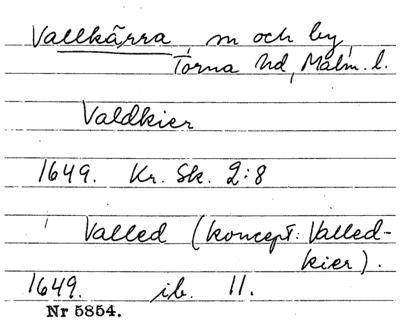 Vallkärra, sn och by,
Torna hd, Malm. l.
Valdkier
1649. Kr. Sk. 2:8
Valled (koncept: Valled-
kier).
1649. ib. 11.
Nr 5854.